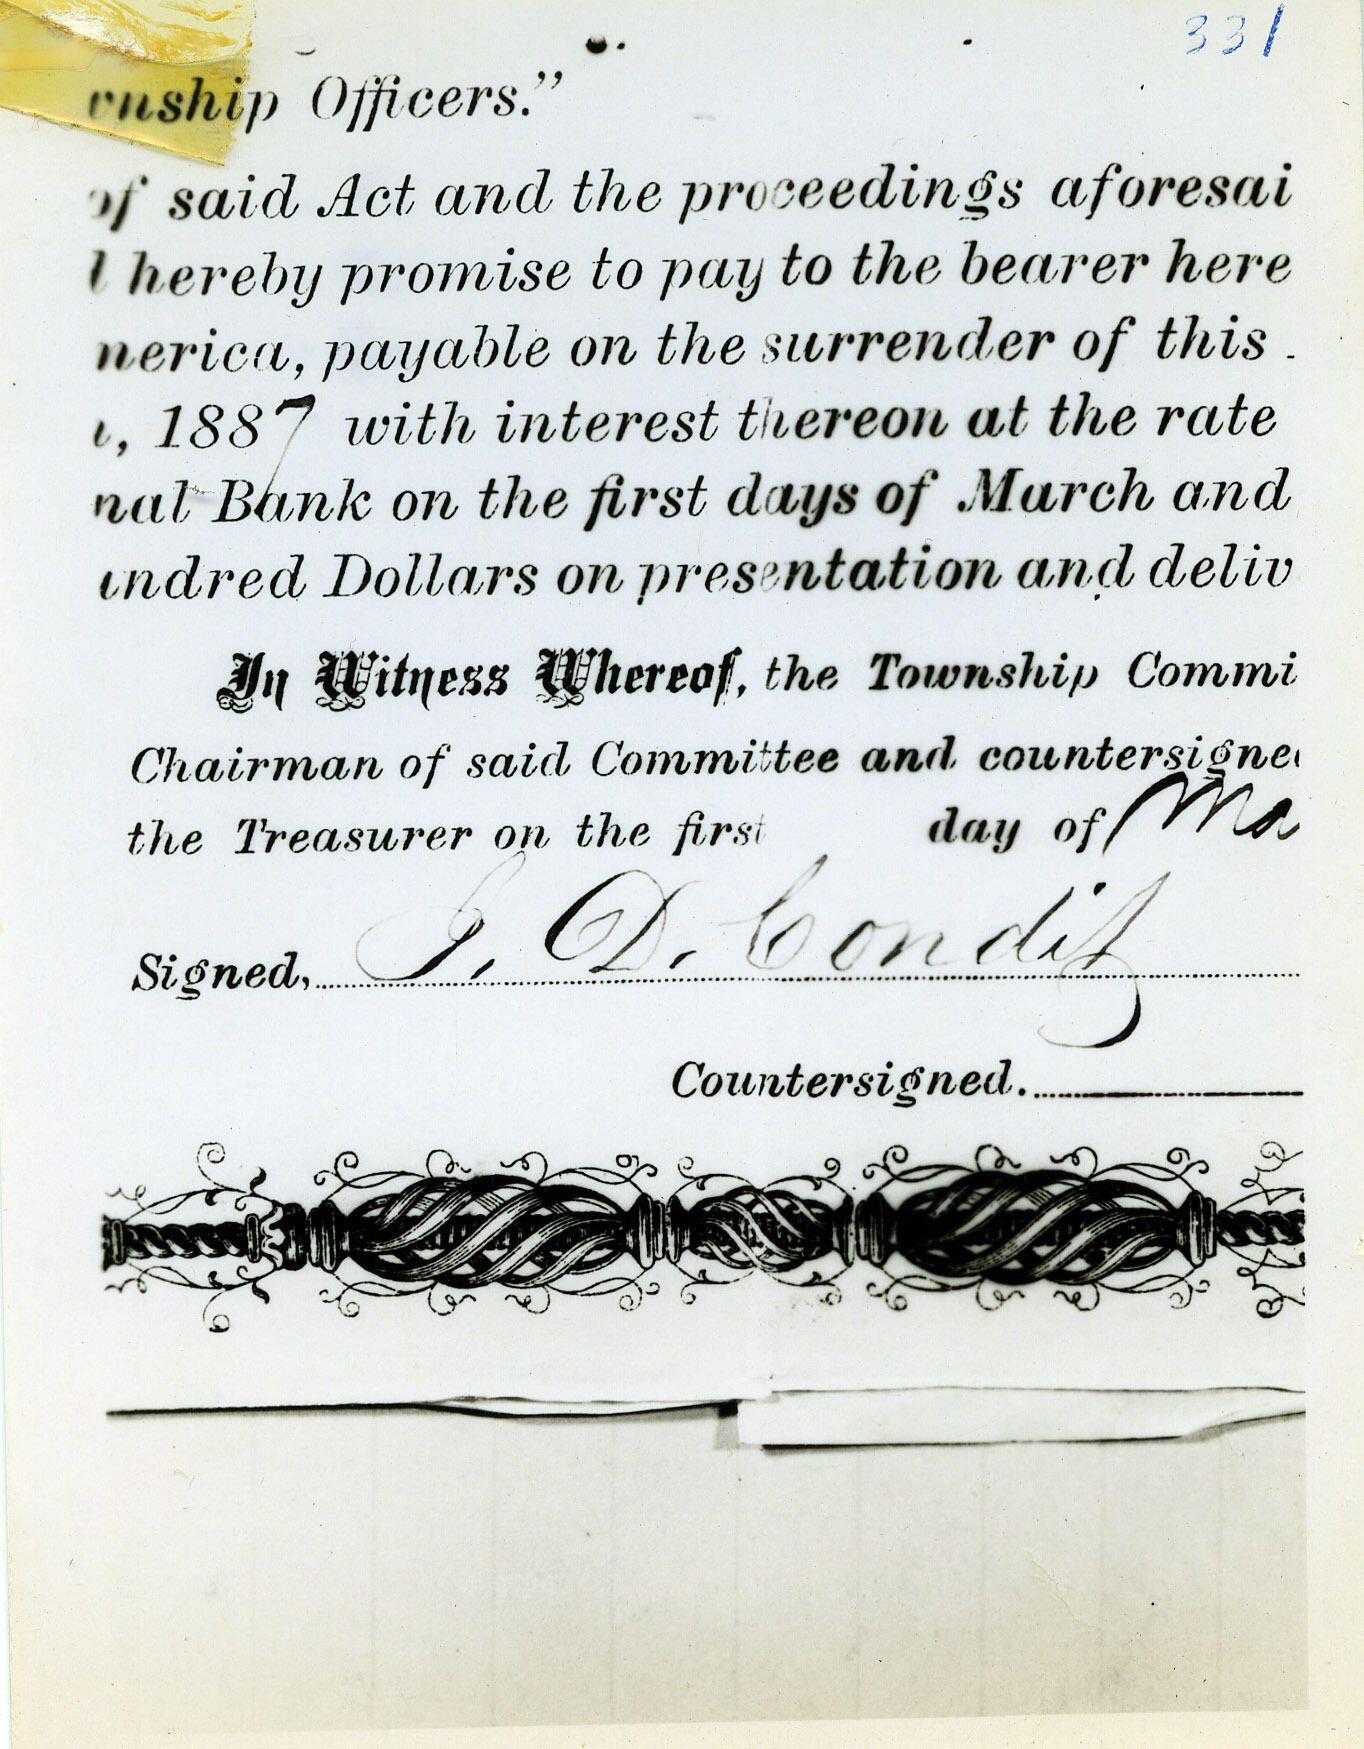 331
wnship Officers.”
of said Act and the proceedings aforesai
hereby promise to pay to the bearer here
nerica, payable on the surrender of this
, 1887 with interest thereon at the rate
nal Bank on the first days of March and
undred Dollars on presentation and deliv
In Witness Whereof, the Township Commi
Chairman of said Committee and countersigne
the Treasurer on the first day of Ma
Signed, I. D. Condit
Countersigned.